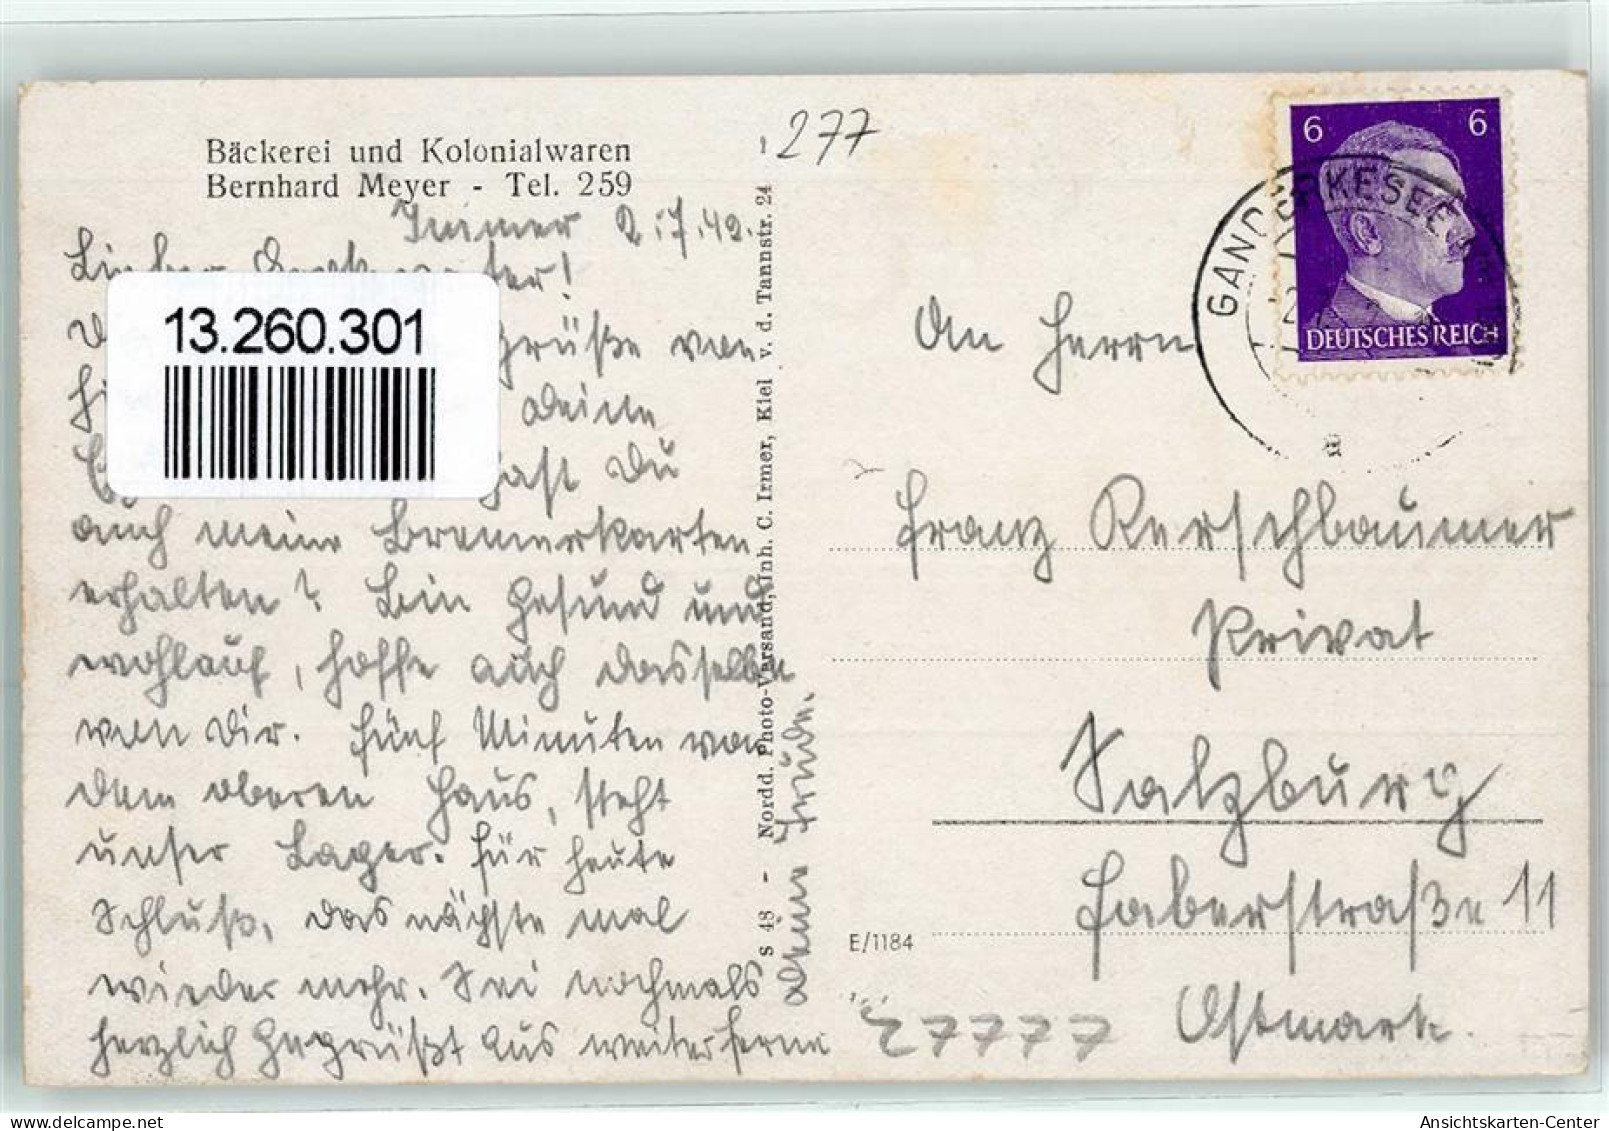 Bäckerei und Kolonialwaren
Bernhard Meyer - Tel. 259
Immer 2.7.42.
Lieber
13.260.301
Grüße von
Deine
hast Du
auch meine Bremerkarten
erhalten? Bin gesund und
wohlauf, hoffe auch dasselbe
von Dir. Fünf Minuten von
dem oberen Haus, steht
unser Lager. Für heute
Schluß, das nächste mal
wieder mehr. Sei nochmals
herzlich gegrüßt aus weiter ferne
Deine Trude.
S 48 - Nordd. Photo-Versand, Inh. C. Irmer, Kiel v. d. Tannstr. 24
277
6 6
DEUTSCHES REICH
GANDERKESEE
An Herrn
Franz Kerschbaumer
Privat
Salzburg
Faberstraße 11
Ostmark.
E/1184
27777
Ansichtskarten-Center